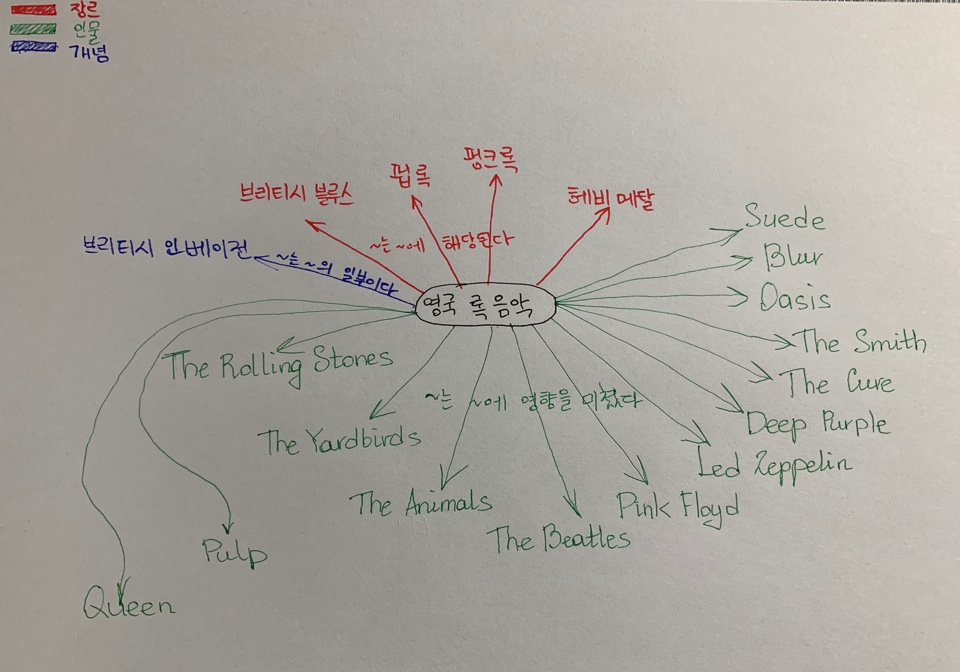 장르
인물
개념
펑크록
펍록
브리티시 블루스
헤비 메탈
Suede
~는 ~에 해당된다
브리티시 인베이전
~는 ~의 일부이다
Blur
Oasis
영국 록 음악
The Smith
The Rolling Stones
The Cure
~는 ~에 영향을 미쳤다
Deep Purple
The Yardbirds
Led Zeppelin
The Animals
Pink Floyd
The Beatles
Pulp
Queen